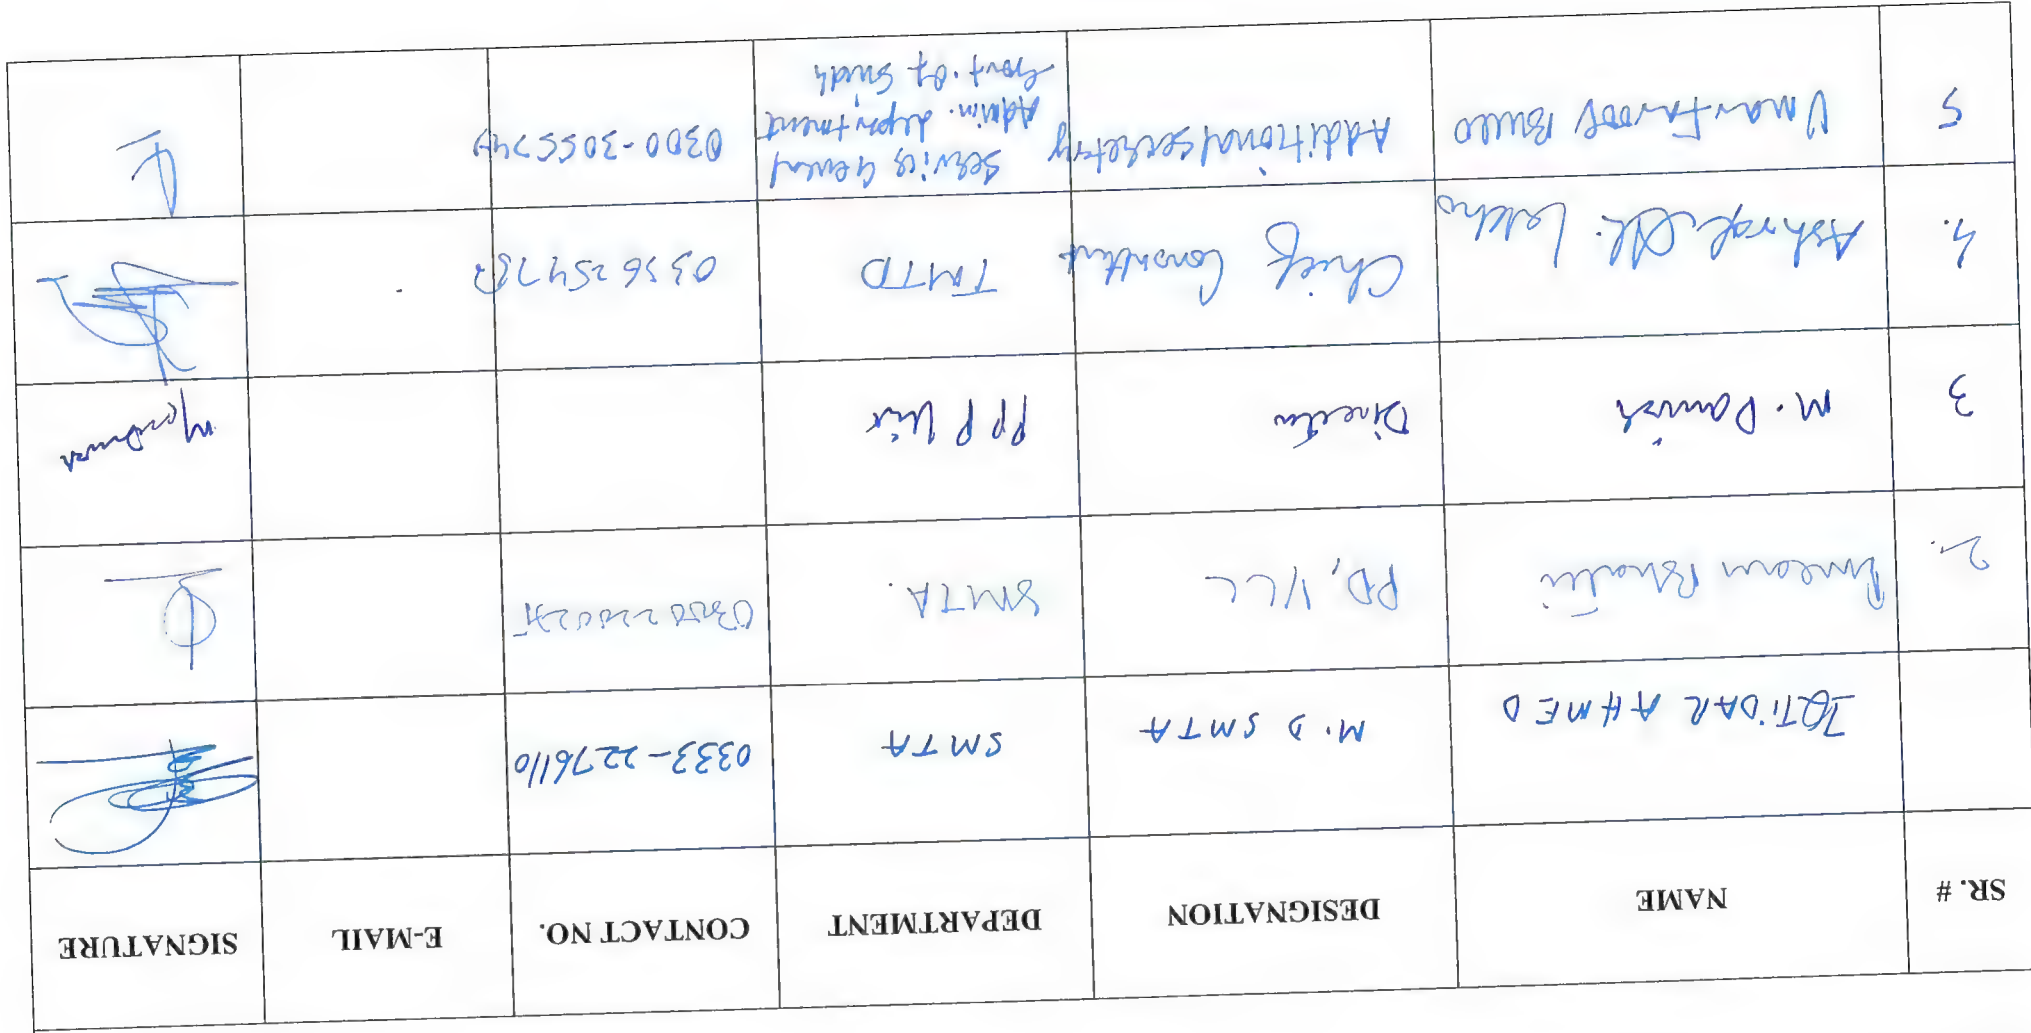 SR. # NAME DESIGNATION DEPARTMENT CONTACT NO. E-MAIL SIGNATURE
IQTIDAR AHMED M.D SMTA SMTA 0333-2276110
2. PD, VLC SMTA.
3 M. Danish Director PPP Unit
4. Ashraf Ali Chief Consultant TMTD
5 Umar Farooq Bullo Additional secretary Services General
Admin. department
Govt. Of Sindh
0300-3055747